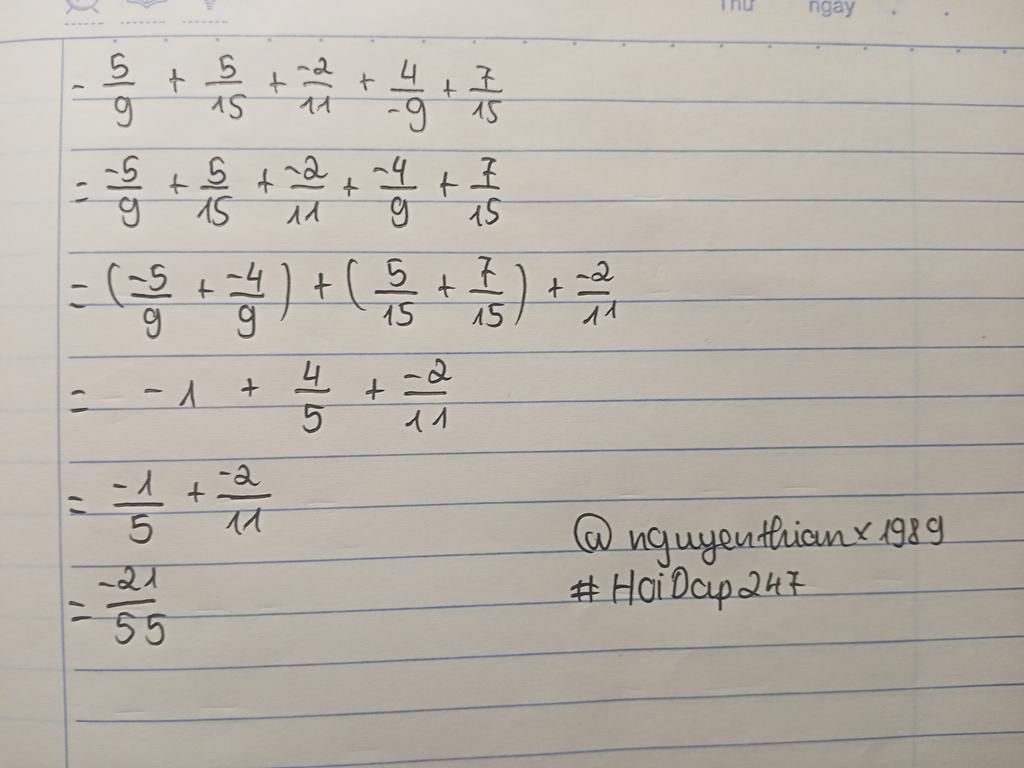 Thứ ngày
- 5/9 + 5/15 + -2/11 + 4/-9 + 7/15
= -5/9 + 5/15 + -2/11 + -4/9 + 7/15
= (-5/9 + -4/9) + (5/15 + 7/15) + -2/11
= -1 + 4/5 + -2/11
= -1/5 + -2/11
= -21/55
@nguyenthianx1989
#HoiDap247